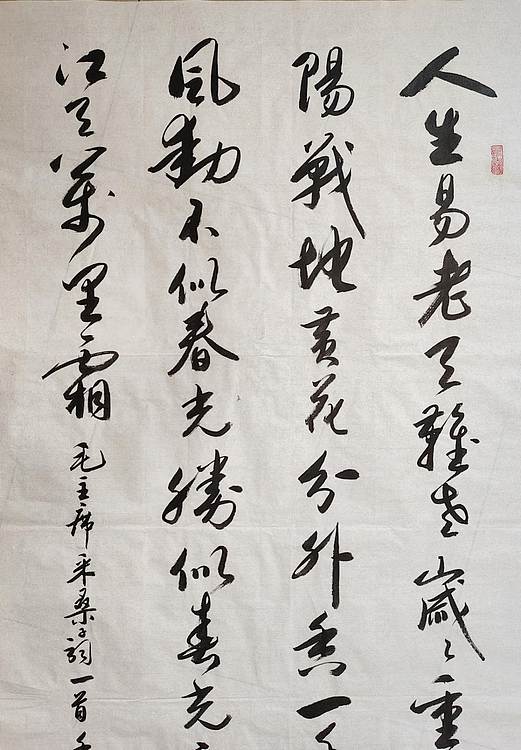 人生易老天難老歲〻重
陽戰地黃花分外香一
風勁不似春光勝似春光
江天萬里霜
毛主席采桑子詞一首